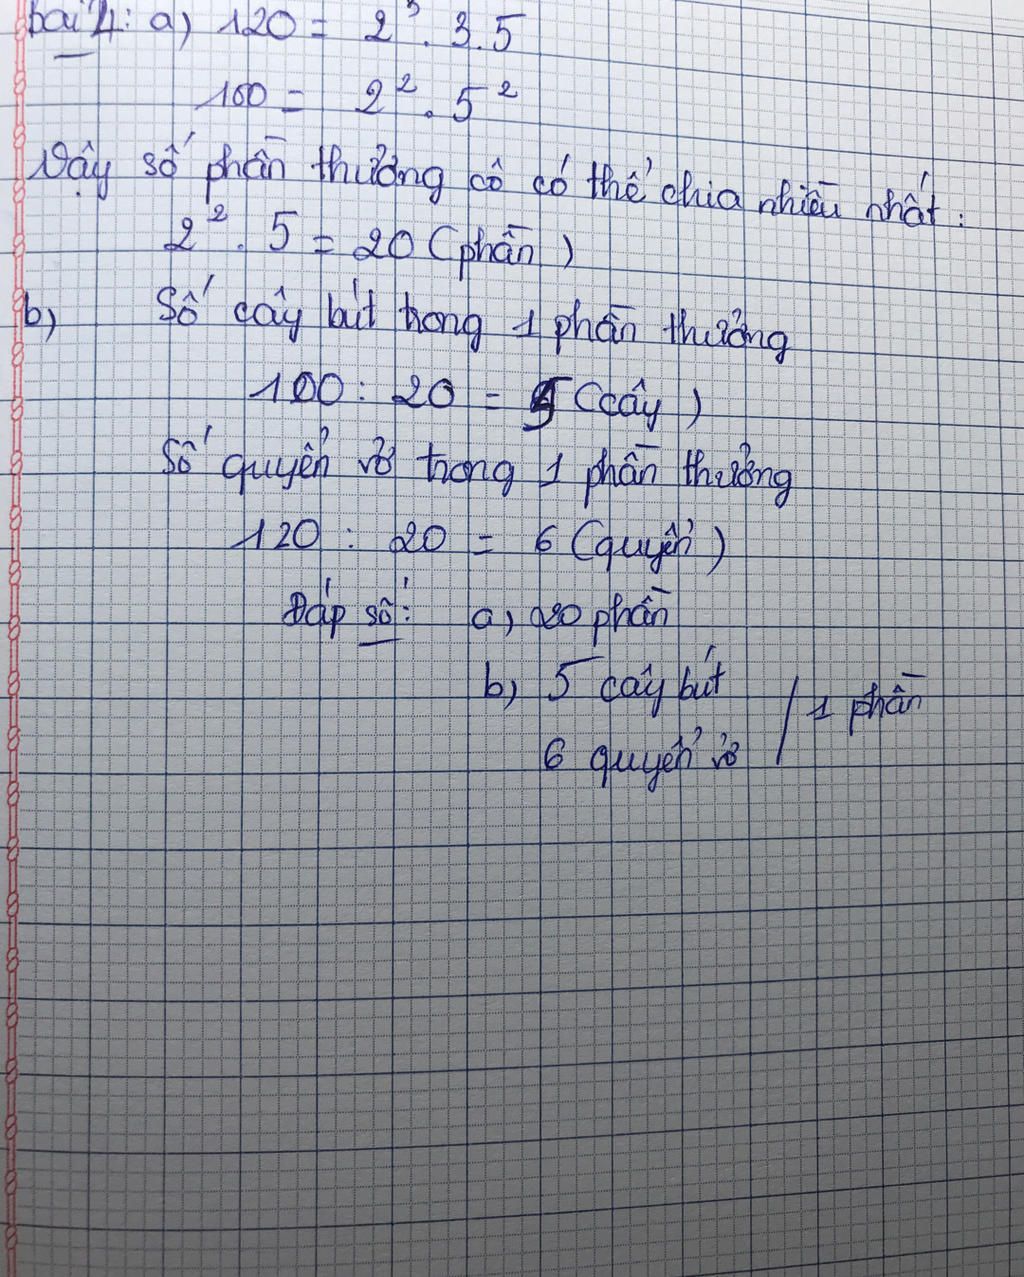 bài 4: a) 120 = 2³ . 3 . 5
100 = 2² . 5²
Vậy số phần thưởng cô có thể chia nhiều nhất:
2² . 5 = 20 (phần)
b) Số cây bút trong 1 phần thưởng
100 : 20 = 5 (cây)
Số quyển vở trong 1 phần thưởng
120 : 20 = 6 (quyển)
Đáp số: a) 20 phần
b) 5 cây bút
/ 1 phần
6 quyển vở